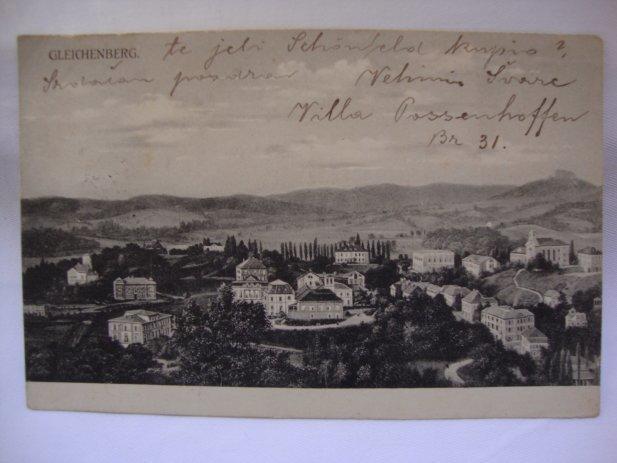 GLEICHENBERG.
te jeli Schönfeld kupio?,
Srdačan pozdrav Švarc
Villa Possenhoffen
Br 31.